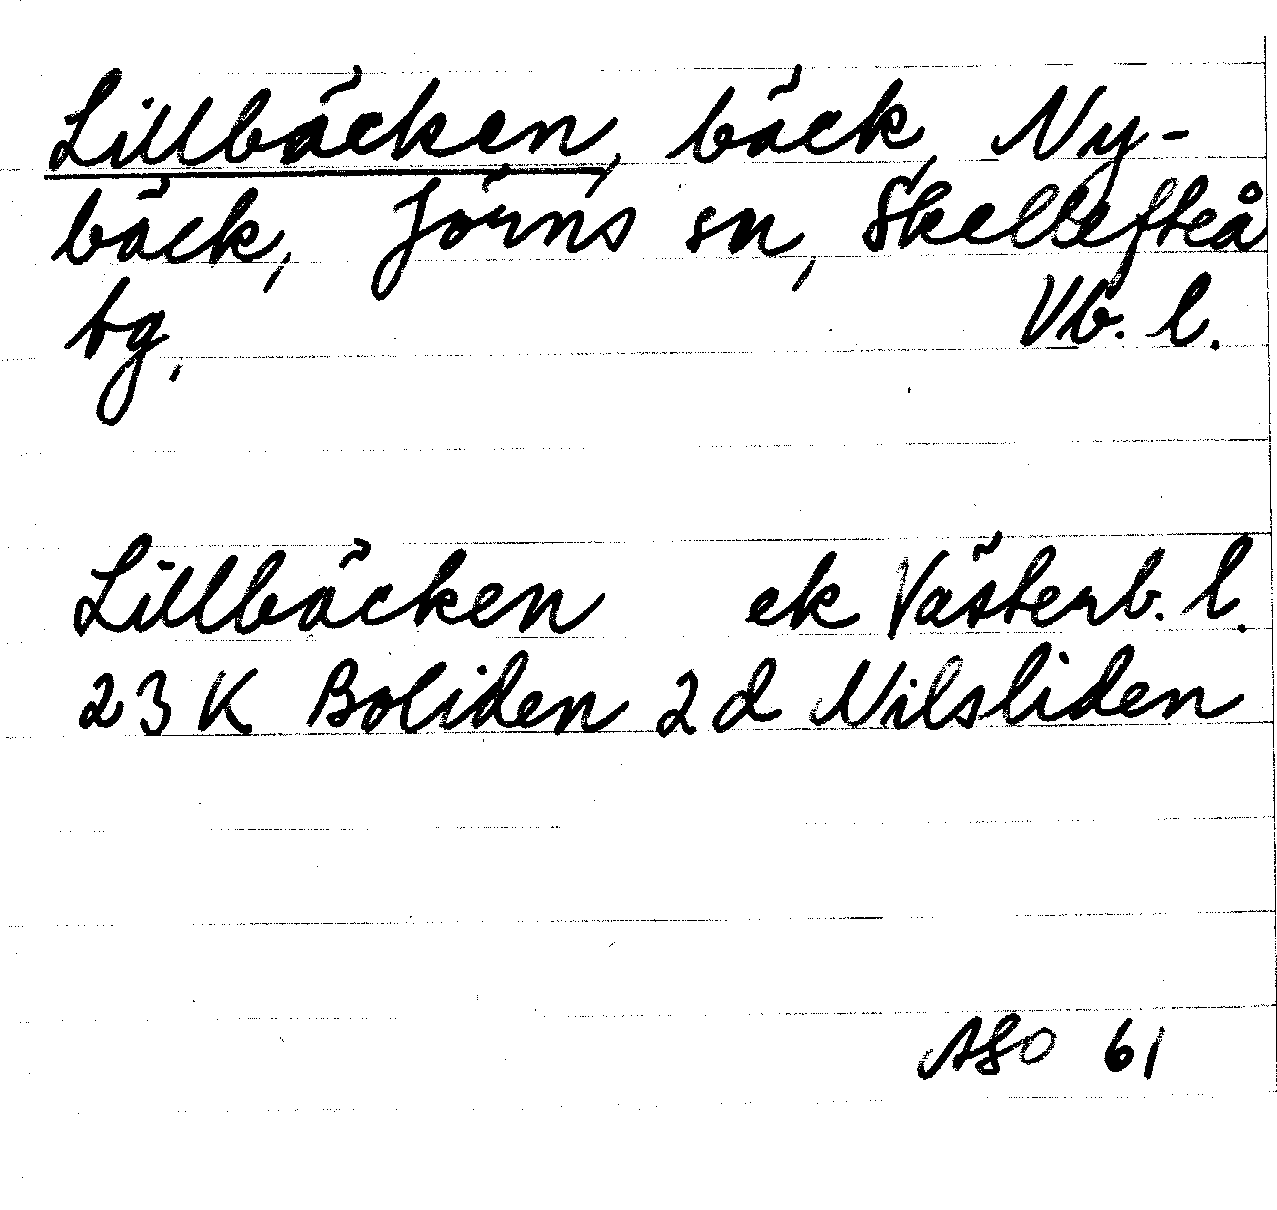 Lillbäcken, bäck, Ny-
bäck, Jörns sn, Skellefteå
tg,                Vb. l.
Lillbäcken    ek Västerb. l.
23 K Boliden 2d Nilsliden
ASO 61